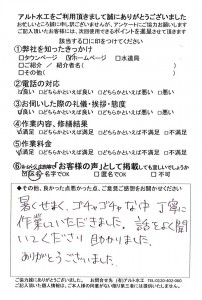 アルト水工をご利用頂きまして誠にありがとうございました
お忙しいところ誠に申し訳ございませんが、アンケートにご協力お願いします
ご記入頂いたお客様には、次回使用できるポイントを進呈させて頂きます
該当する□に印をつけてください
①弊社を知ったきっかけ
□タウンページ ☑ホームページ □水道局
□ご紹介 / 紹介者名( )
□その他( )
②電話の対応
☑良い □どちらかといえば良い □どちらかといえば悪い □悪い
③お伺いした際の礼儀・挨拶・態度
☑良い □どちらかといえば良い □どちらかといえば悪い □悪い
④作業内容、修繕結果
☑満足 □どちらかといえば満足 □どちらかといえば不満足 □不満足
⑤作業料金
☑満足 □どちらかといえば満足 □どちらかといえば不満足 □不満足
「お客様の声」として掲載しても宜しいでしょうか
名字でOK □匿名でOK □不可
◆その他、良かった点悪かった点、ご意見ご感想をお聞かせください
暑く せまく、ゴチャゴチャな中 丁寧に
作業していただきました。話もよく聞
いてくださり 助かりました。
ありがとうございました。
ご協力誠にありがとうございました。 お問合せ先 (有)アルト水工